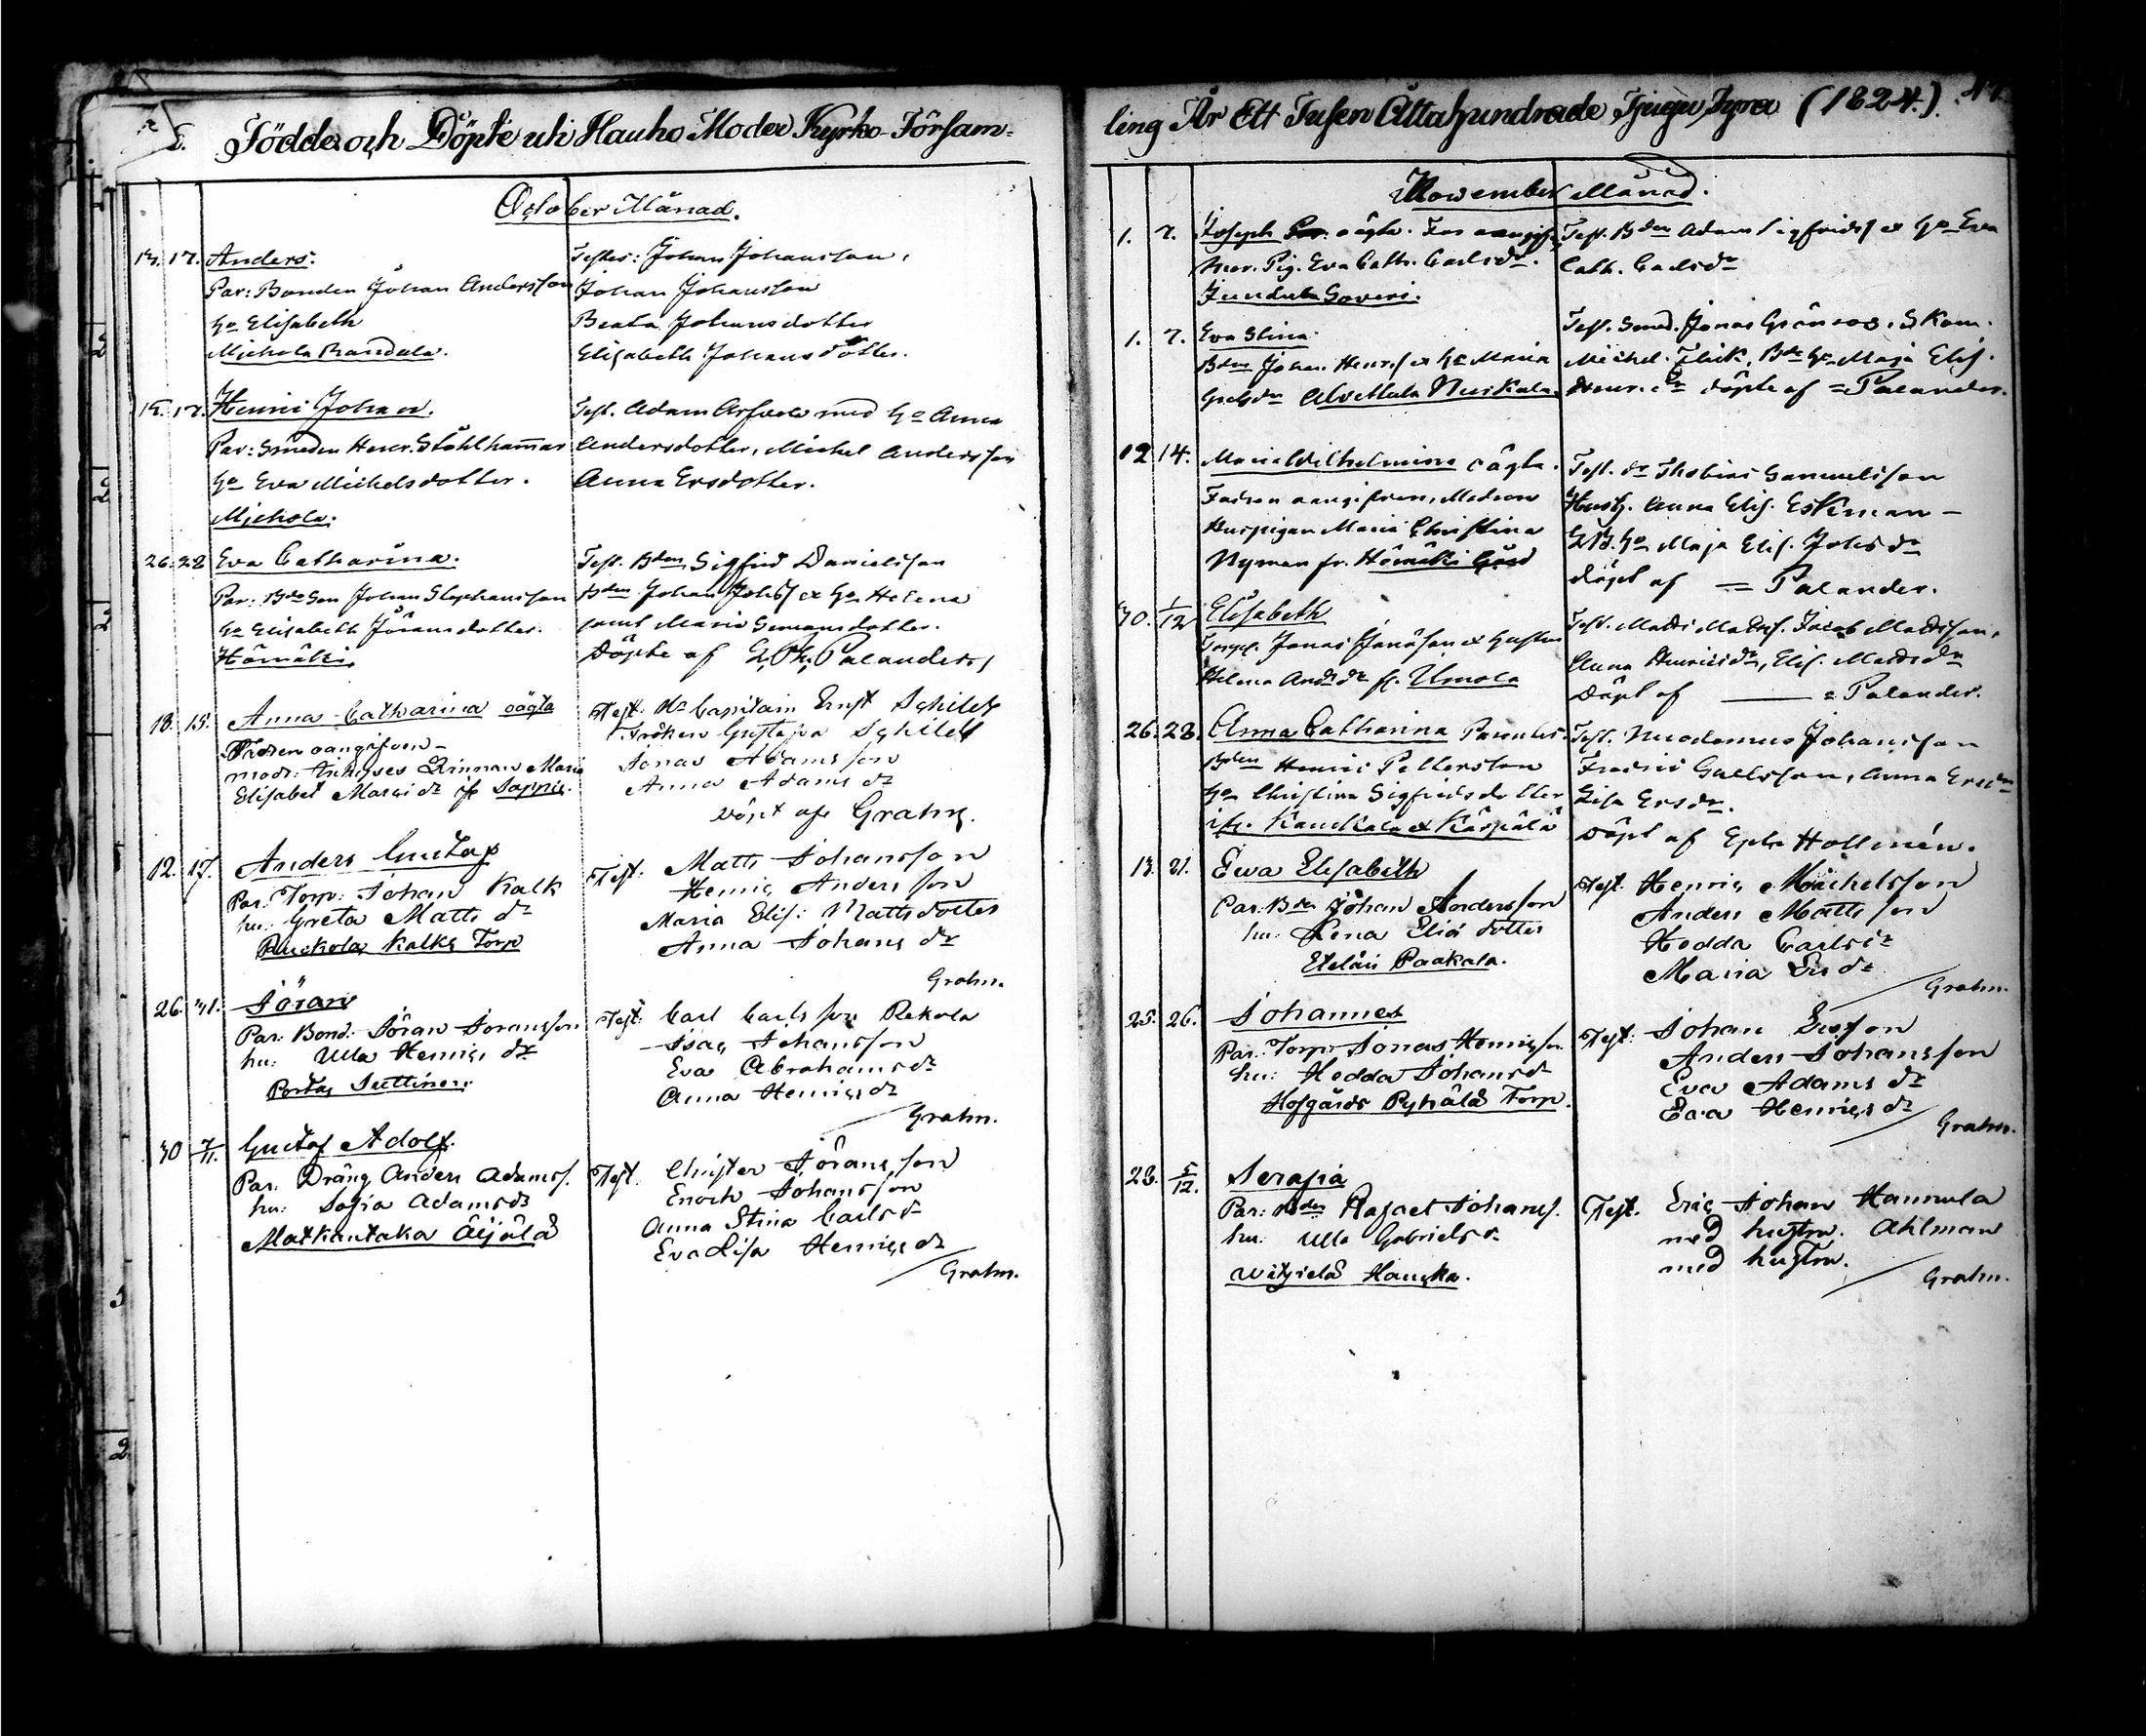 Födde och Döpte uti Hauho Moder Kyrko-Försam=
October Månad.
13. 17. Anders.
Par: Bonden Johan Andersson
Hu Elisabeth
Michola Randala.
Testes: Johan Johansson,
Johan Johansson
Beata Johansdotter
Elisabeth Johansdotter.
15. 17. Henric Johan.
Par: Smeden Henr. Stählhammar
Hu Eva Michelsdotter.
Michola.
Test. Adam med Hu Anna
Andersdotter, Michel Andersson
Anna Ersdotter.
26. 28 Eva Catharina.
Par: Bde Son Johan Stephansson
Hu Elisabeth Jöransdotter.
Hämäki.
Test. Bden Sigfrid Danielsson
Bden Johan Johss et Hu Helena
samt Maria Simonsdotter.
Döpte af Palander
18. 15. Anna Catharina oägta
Fadren oangifven
modr: Qvinnan Maria
Elisabet dr fr Sappis.
Test: Hr Capitain Ernst Schildt
Fröken Gustava Schildt
Jonas Adamsson
Anna Adams dr
döpt af Grahn.
12. 17. Anders Gustaf
Par. Torp: Johan Kalk
hu: Greta Matts dr
Puckola Kalks Torp
Test: Matts Johansson
Henric Andersson
Maria Elis: Mattsdotter
Anna Johans dr
Grahn.
26. 31. Jöran
Par: Bond. Jöran Joransson
hu: Ulla Henrics dr
Portas Suttinen.
Test: Carl Carlsson Rekola
Isac Johansson
Eva Abrahams dr
Anna Henrics dr
Grahn.
30 7/11. Gustaf Adolf.
Par: Dräng Anders Adamss.
hu: Sofia Adamsdr
Matkantaka Äijälä
Test. Christer Jöransson
Enoch Johansson
Anna Stina Carlsdr
Eva Lisa Henrics dr
Grahn.
ling År Ett Tusen Åttahundrade Tjugu Fyra (1824.). 47.
November Månad.
1. 7. Joseph oägta. Far oangifv.
Mor. Pig. Eva Cath. Carlsdr.
Test. Bden Adam Sigfridss et Hu Eva
Cath. Carlsdr
1. 7. Eva Stina
Bden Johan Henrss et Hu Maria
Alvettula Nurkala.
Test. Smed. Jonas
Michel Bde Hu Maja Elis.
Henr. dr döpte af = Palander.
12 14. Maria Wilhelmina oägta.
Fadren oangifven, Modren
Huspigan Maria Christina
Nyman fr. Hämäki Gård
Test. Thobias Samuelsson
Hust. Anna Elis. Eskman —
Hu Maja Elis. Johs dr
döpt af = Palander.
30. 1/12 Elisabeth
Jonas Jonasson et hustru
Helena Ands dr fr. Umola
Test. Matts Mattss. Jacob Mattsson,
Anna Henricsdr, Elis. Matts dr
döpt af — = Palander.
26. 28. Anna Catharina Parentes:
Bden Henric Pettersson
Hu Christina Sigfridsdotter
ifr. Kaukala et Kärpälä
Test. Nicodemus Johansson
Fredric Anna Ersdr
Lisa Ersdr.
döpt af Hollmén.
13. 21. Ewa Elisabeth
Par. Bden Johan Andersson
hu: Lena Eliä dotter
Etelän Paakala.
Test. Henric Michelsson
Anders Mattsson
Hedda Carlsdr
Maria Ers dr
Grahn.
25. 26. Johannes
Par: Torp: Jonas Henricsson.
hu: Hedda Johansdr
Hofgårds Pyhälä Torp.
Test: Johan Ersson
Anders Johansson
Eva Adams dr
Eva Henrics dr
Grahn.
28. 5/12. Serafia
Par: Bden Rafael Johanss.
hu: Ulla Gabrielsdr
Witziälä Hauska.
Test. Eric Johan Hannula
med hustru. Ahlman
med hustru.
Grahn.